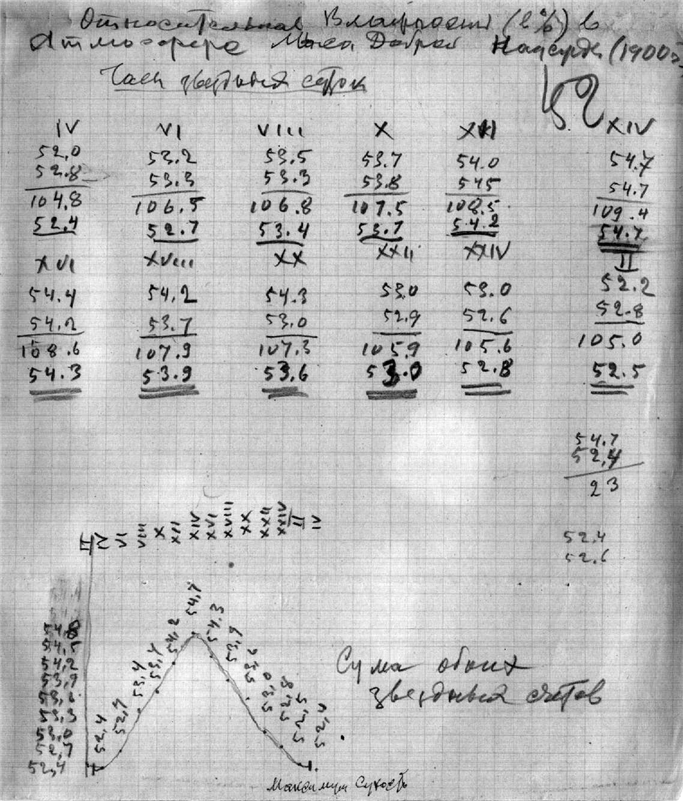 Относительная Влажность (в %) в
Атмосфере Мыса Доброй Надежды (1900 г.
Часы звездных суток
IV VI VIII X XII XIV
52,0 53.2 53.5 53.7 54.0 54.7
52.8 53.3 53.3 53.8 545 54.7
104.8 106.5 106.8 107.5 108.5 109.4
52.4 52.7 53.4 53.7 54.2 54.7
XVI XVIII XX XXII XXIV II
54.4 54,2 54.3 53.0 53.0 52.2
54.2 53.7 53,0 52,9 52.6 52.8
108.6 107.9 107.3 105.9 105.6 105.0
54.3 53.9 53,6 53.0 52.8 52.5
54.7
52,4
23
52.4
52.6
II IV VI VIII X XII XIV XVI XVIII XX XXII XXIV II IV
54,8
54,5
54,2
53,9
53,6
53,3
53,0
52,7
52,4
52,4 52,7 53,4 53,7 54,2 54,7 54.3 53,9 52,5 52,4
Сума обоих
звездных счетов
Максимум Сухость